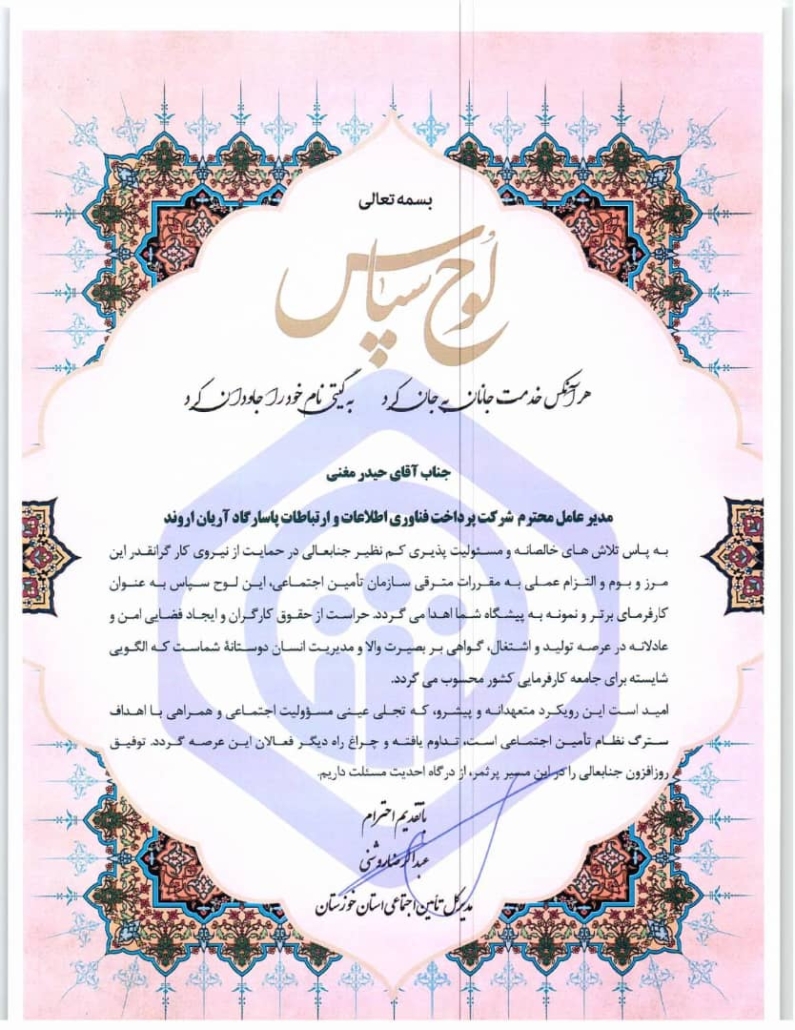 بسمه تعالی
لوح سپاس
هر آنکس خدمت جانان به جان کرد به گیتی نام خود را جاودان کرد
جناب آقای حیدر مغنی
مدیر عامل محترم شرکت پرداخت فناوری اطلاعات و ارتباطات پاسارگاد آریان اروند
به پاس تلاش های خالصانه و مسئولیت پذیری کم نظیر جنابعالی در حمایت از نیروی کار گرانقدر این
مرز و بوم و التزام عملی به مقررات مترقی سازمان تأمین اجتماعی، این لوح سپاس به عنوان
کارفرمای برتر و نمونه به پیشگاه شما اهدا می گردد. حراست از حقوق کارگران و ایجاد فضایی امن و
عادلانه در عرصه تولید و اشتغال، گواهی بر بصیرت والا و مدیریت انسان دوستانهٔ شماست که الگویی
شایسته برای جامعه کارفرمایی کشور محسوب می گردد.
امید است این رویکرد متعهدانه و پیشرو، که تجلی عینی مسؤولیت اجتماعی و همراهی با اهداف
سترگ نظام تأمین اجتماعی است، تداوم یافته و چراغ راه دیگر فعالان این عرصه گردد. توفیق
روزافزون جنابعالی را در این مسیر پرثمر، از درگاه احدیت مسئلت داریم.
با تقدیم احترام
عبدالرضا روشنی
مدیرکل تامین اجتماعی استان خوزستان